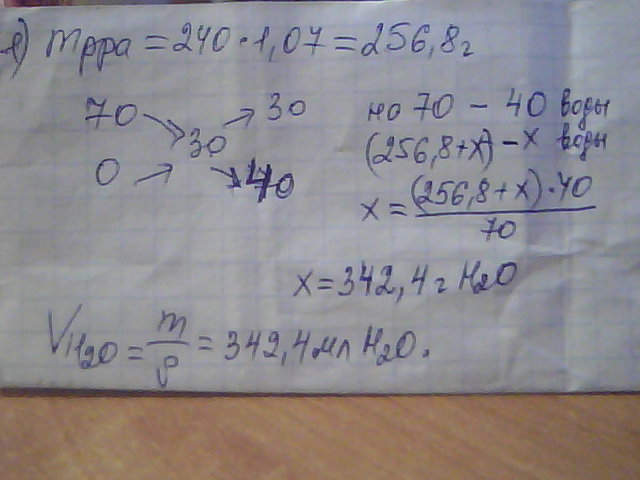 1) mрра = 240 · 1,07 = 256,8 г
70 → 30
30
0 → 40
на 70 – 40 воды
(256,8+x) – x воды
x = (256,8 + x) · 40
70
x = 342,4 г H2O
VH2O = m/ρ = 342,4 мл H2O.